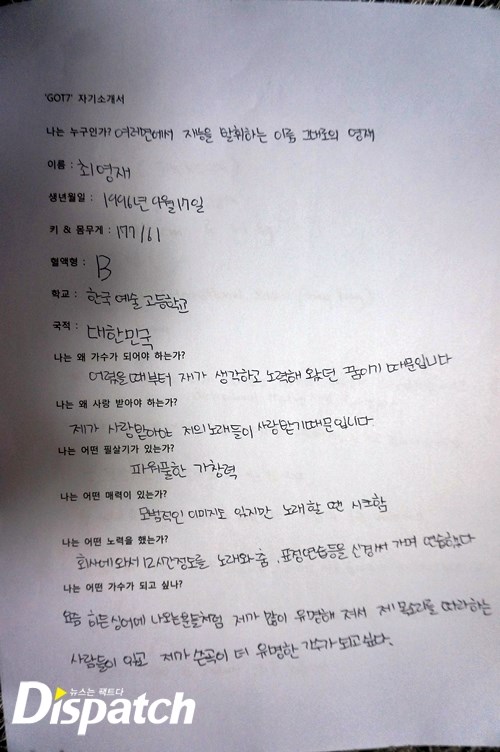 'GOT7' 자기소개서
나는 누구인가? 여러면에서 지능을 발휘하는 이름 그대로의 영재
이름 : 최영재
생년월일 : 1996년 9월 17일
키 & 몸무게 : 177/61
혈액형 : B
학교 : 한국예술고등학교
국적 : 대한민국
나는 왜 가수가 되어야 하는가?
어렸을때부터 제가 생각하고 노력해 왔던 꿈이기 때문입니다
나는 왜 사랑 받아야 하는가?
제가 사랑받아야 저의노래들이 사랑받기때문입니다
나는 어떤 필살기가 있는가?
파워풀한 가창력
나는 어떤 매력이 있는가?
모범적인 이미지도 있지만 노래할 땐 시크함
나는 어떤 노력을 했는가?
회사에와서 12시간정도를 노래와 춤, 표정연습등을 신경써 가며 연습했다
나는 어떤 가수가 되고 싶나?
요즘 히든싱어에 나오는분들처럼 제가 많이 유명해 져서 제 목소리를 따라하는
사람들이 있고 제가 부른곡이 더 유명한 가수가되고싶다.
뉴스는 팩트다
Dispatch